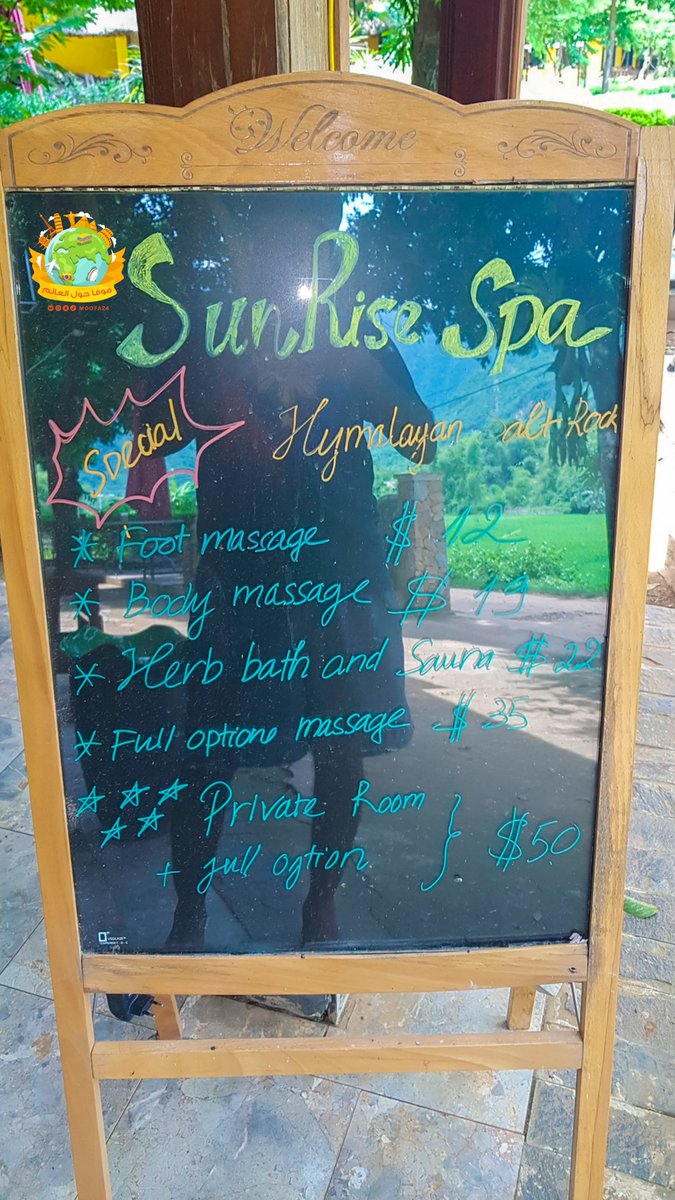 Welcome
موفا حول العالم
MOOFA24
SunRise Spa
Special
Hymalayan Salt Rock
* Foot massage $ 12
* Body massage $ 19
* Herb bath and Sauna $ 22
* Full optione massage $ 35
Private Room
+ full option } $50